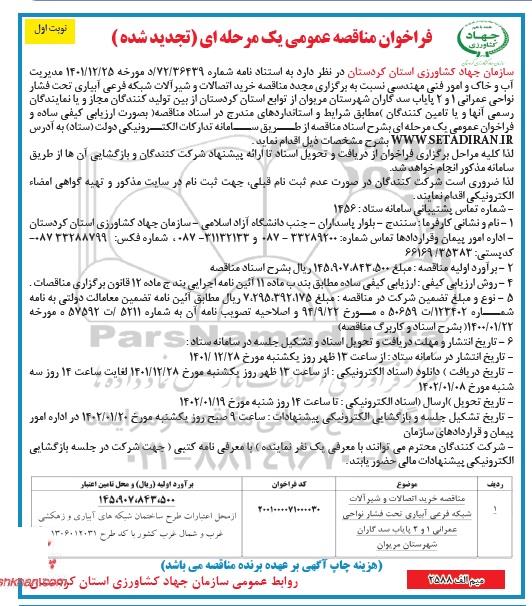 نوبت اول
فراخوان مناقصه عمومی یک مرحله ای (تجدید شده )
جهاد
کشاورزی
سازمان جهاد کشاورزی استان کردستان در نظر دارد به استناد نامه شماره ۷۲/۳۶۴۳۹/د مورخه ۱۴۰۱/۱۲/۲۵ مدیریت
آب و خاک و امور فنی مهندسی نسبت به برگزاری مجدد مناقصه خرید اتصالات و شیرآلات شبکه فرعی آبیاری تحت فشار
نواحی عمرانی ۱ و ۲ پایاب سد گاران شهرستان مریوان از توابع استان کردستان از بین تولید کنندگان مجاز و یا نمایندگان
رسمی آنها و یا تامین کنندگان (مطابق شرایط و استانداردهای مندرج در اسناد مناقصه) بصورت ارزیابی کیفی ساده و
فراخوان عمومی یک مرحله ای بشرح اسناد مناقصه از طریق سامانه تدارکات الکترونیکی دولت (ستاد) به آدرس
WWW.SETADIRAN.IR بشرح مشخصات ذیل اقدام نماید .
لذا کلیه مراحل برگزاری فراخوان از دریافت و تحویل اسناد تا ارائه پیشنهاد شرکت کنندگان و بازگشایی آن ها از طریق
سامانه مذکور انجام خواهد شد.
لذا ضروری است شرکت کنندگان در صورت عدم ثبت نام قبلی، جهت ثبت نام در سایت مذکور و تهیه گواهی امضاء
الکترونیکی اقدام نمایند.
- شماره تماس پشتیبانی سامانه ستاد : ۱۴۵۶
۱ - نام و نشانی کارفرما : سنندج - بلوار پاسداران - جنب دانشگاه آزاد اسلامی - سازمان جهاد کشاورزی استان کردستان
- اداره امور پیمان وقراردادها تماس شماره: ۳۳۲۸۹۲۰۰ - ۰۸۷ و ۳۱۱۳۲۱۳۳ - ۰۸۷ ، شماره فکس: ۳۳۲۸۸۷۹۹ - ۰۸۷
کدپستی: ۶۶۱۶۹/۳۵۳۸۳
۲ - برآورد اولیه مناقصه : مبلغ ۱۴۵،۹۰۷،۸۴۳،۵۰۰ ریال بشرح اسناد مناقصه
۴ - روش ارزیابی کیفی : ارزیابی کیفی ساده مطابق بند ب ماده ۱۱ آئین نامه اجرایی بند ج ماده ۱۲ قانون برگزاری مناقصات .
۵ - نوع و مبلغ تضمین شرکت در مناقصه : مبلغ ۷،۲۹۵،۳۹۲،۱۷۵ ریال مطابق آئین نامه تضمین معاملات دولتی به نامه
شماره ۱۲۳۴۰۲/ت ۵۰۶۵۹ ه مورخ ۹۴/۹/۲۲ و اصلاحیه تصویب نامه آن به شماره ۵۲۱۱ /ت ۵۷۵۹۲ ه مورخه
۱۴۰۰/۰۱/۲۲ (بشرح اسناد و کاربرگ مناقصه)
۶ - تاریخ انتشار و مهلت دریافت و تحویل اسناد و تشکیل جلسه در سامانه ستاد :
- تاریخ انتشار در سامانه ستاد : از ساعت ۱۳ ظهر روز یکشنبه مورخ ۱۴۰۱/۱۲/۲۸
- تاریخ دریافت ) دانلود (اسناد الکترونیکی : از ساعت ۱۳ ظهر روز یکشنبه مورخ ۱۴۰۱/۱۲/۲۸ لغایت ساعت ۱۴ روز سه
شنبه مورخ ۱۴۰۲/۰۱/۰۸
- تاریخ تحویل )ارسال (اسناد الکترونیکی : تا ساعت ۱۴ روز شنبه مورخ ۱۴۰۲/۰۱/۱۹
- تاریخ تشکیل جلسه و بازگشایی الکترونیکی پیشنهادات : ساعت ۹ صبح روز یکشنبه مورخ ۱۴۰۲/۰۱/۲۰ در اداره امور
پیمان و قراردادهای سازمان
- شرکت کنندگان محترم می توانند با معرفی یک نفر نماینده ) با معرفی نامه کتبی ( جهت شرکت در جلسه بازگشایی
الکترونیکی پیشنهادات مالی حضور یابند.
ردیف موضوع مناقصه کد فراخوان برآورد اولیه (ریال) و محل تامین اعتبار
۱ مناقصه خرید اتصالات و شیرآلات شبکه فرعی آبیاری تحت فشار نواحی عمرانی ۱ و ۲ پایاب سد گاران شهرستان مریوان ۲۰۰۱۰۰۰۰۷۱۰۰۰۰۳۰ ۱۴۵،۹۰۷،۸۴۳،۵۰۰
ازمحل اعتبارات طرح ساختمان شبکه های آبیاری و زهکشی
غرب و شمال غرب کشور با کد طرح ۱۳۰۶۰۱۲۰۳۱
(هزینه چاپ آگهی بر عهده برنده مناقصه می باشد)
میم الف ۳۵۸۸
روابط عمومی سازمان جهاد کشاورزی استان کردستان
ParsNamadData
۰۲۱-۸۸۳۴۹۶۷۰